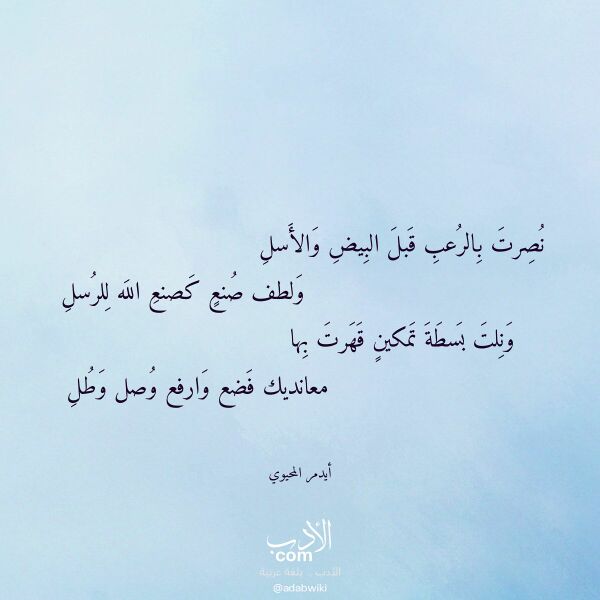 نُصِرتَ بِالرُعبِ قَبلَ البِيضِ وَالأَسلِ
وَلطف صُنعٍ كَصنعِ اللَه لِلرُسلِ
وَنِلتَ بَسطَةَ تَمكينٍ قَهَرتَ بِها
معانديك فَضع وَارفع وُصل وَطُلِ
أيدمر المحيوي
الأدب
com
الأدب .. بلغة عربية
@adabwiki